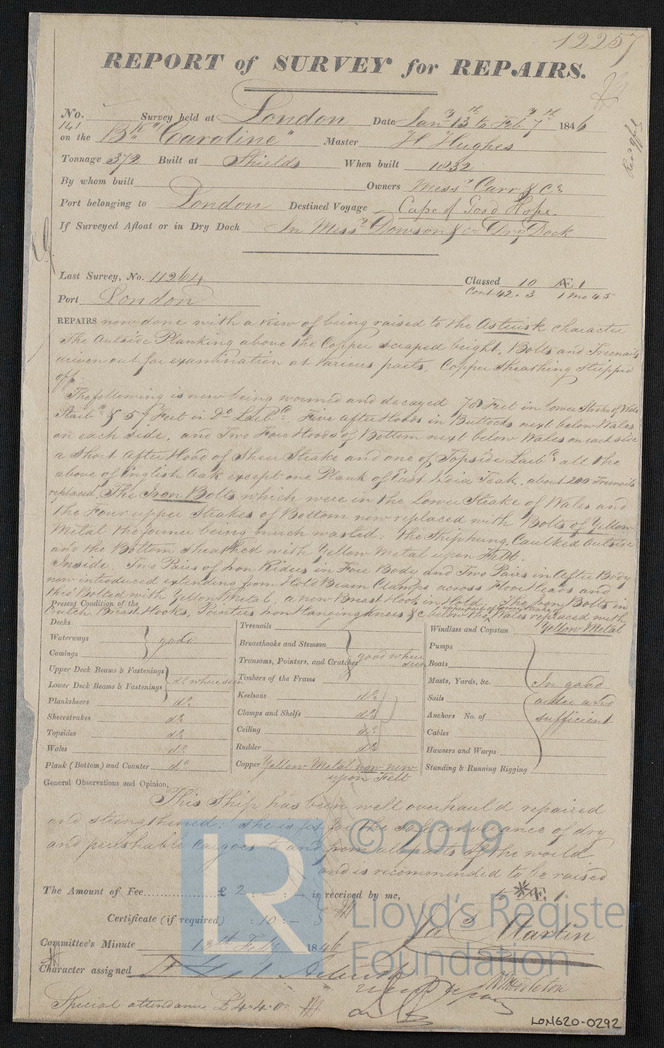 12257
REPORT of SURVEY for REPAIRS.
No. 141 Survey held at London Date Jany 13th to Feby 7th 1846
on the Bk "Caroline" Master H Hughes
Tonnage 372 Built at Shields When built 1832
By whom built Owners Messrs Carr & Co
Port belonging to London Destined Voyage Cape of Good Hope.
If Surveyed Afloat or in Dry Dock In Messrs Dowson & Co Dry Dock
Last Survey, No. 11264 Classed 10 Æ 1
Port London Cont 42.3 1 mo 45
REPAIRS now done with a view of being raised to the Asterisk character
The Outside Planking above the Copper scraped bright, Bolts and Treenails
driven out for examination at various parts, Copper Sheathing stripped
off:
The following is now being wounded and decayed 78 Feet in Lower Strake of Wales
Starbd & 57 Feet in Do Larbd: Five after Hoods in Buttocks next below Wales
on each side, and Two Fore Hoods of Bottom next below Wales on each side
a short after Hood of Sheer Strake and one of Topside Larbd, all the
above of English Oak except one Plank of East India Teak, about 200 Treenails
replaced, The Iron Bolts which were in the Lower Strake of Wales and
the Four upper Strakes of Bottom now replaced with Bolts of Yellow
Metal the former being much wasted. The Ship hung, Caulked Outside
and the Bottom sheathed with Yellow Metal upon Felt.
Inside. Two Pairs of Iron Riders in Fore Body and Two Pairs in After Body
now introduced extending from Hold Beam Clamps across Floor Heads and
this Bolted with Yellow Metal, a new Breast Hook in Hold. The Iron Bolts in
Dutch Breast Hooks, Pointers Iron Hanging knees & Wales replaced with
Yellow Metal
Present Condition of the
Decks
Waterways good
Comings
Upper Deck Beams & Fastenings
Lower Deck Beams & Fastenings do where seen
Planksheers do
Sheerstrakes do
Topsides do
Wales do
Plank (Bottom) and Counter do
Treenails
Breasthooks and Stemson
Transoms, Pointers, and Crutches good where seen
Timbers of the Frame
Keelsons do
Clamps and Shelfs do
Ceiling do
Rudder do
Copper Yellow Metal now new
upon Felt
Windlass and Capstan
Pumps
Boats
Masts, Yards, &c. In good
Sails order and
Anchors No. of sufficient
Cables
Hawsers and Warps
Standing & Running Rigging
General Observations and Opinion,
This Ship has been well overhauld repaired
and strengthened. she is fit for the safe conveyance of dry
and perishable cargoes to and from all parts of the world
and is recommended to be raised
The Amount of Fee £ 2 : - : - is received by me, to * Æ 1
Certificate (if required) : 10 : -
Jas Martin
Committee's Minute 13th Feby 1846
Character assigned
Special attendance £4.4.0
© 2019
LR
Lloyd's Register
Foundation
LON620-0292